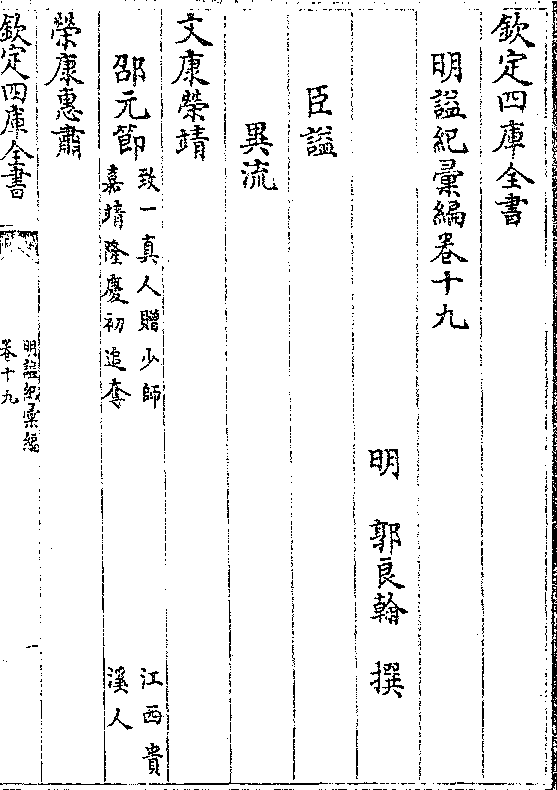 欽定四庫全書
明諡紀彙編卷十九
明 郭良翰 撰
臣諡
異流
文康榮靖
邵元節
致一真人贈少師
嘉靖隆慶初追奪
江西貴
溪人
榮康惠肅
欽定四庫全書
明諡紀彙編
卷十九
一